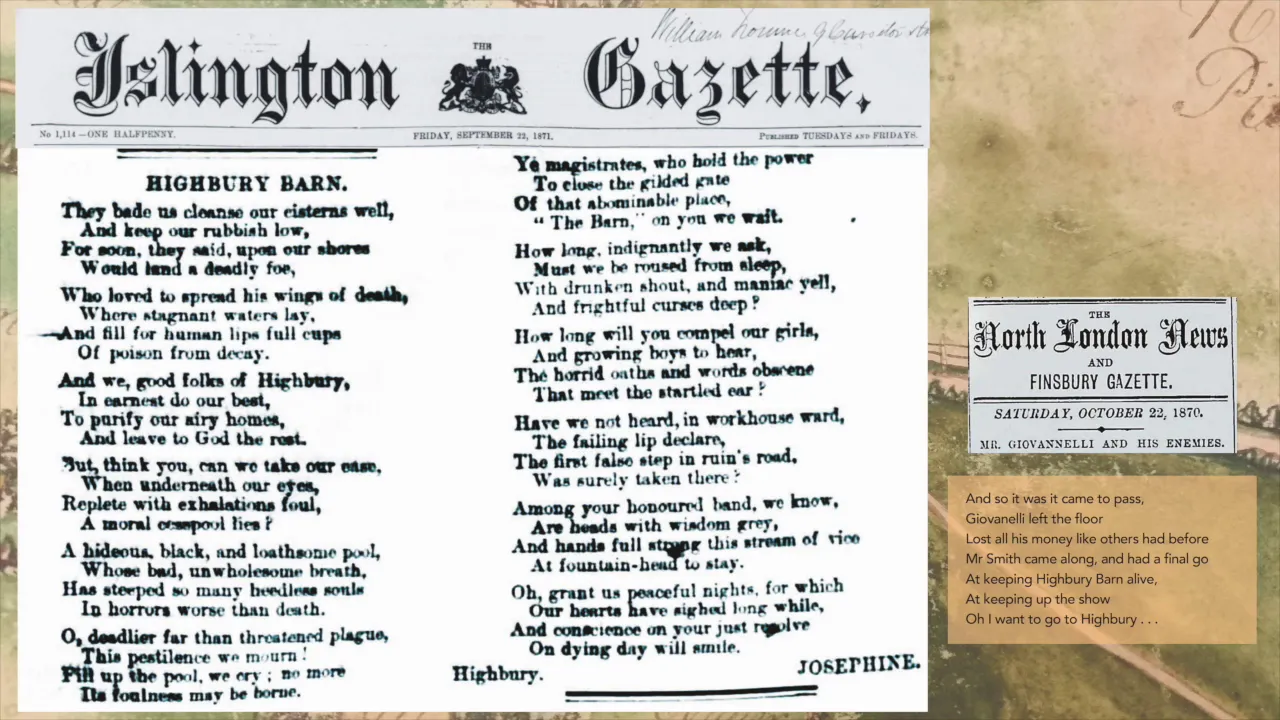 Islington THE Gazette.
No 1,114 —ONE HALFPENNY. FRIDAY, SEPTEMBER 22, 1871. PUBLISHED TUESDAYS AND FRIDAYS.
HIGHBURY BARN.
They bade us cleanse our cisterns well,
And keep our rubbish low,
For soon, they said, upon our shores
Would land a deadly foe,
Who loved to spread his wings of death,
Where stagnant waters lay,
And fill for human lips full cups
Of poison from decay.
And we, good folks of Highbury,
In earnest do our best,
To purify our airy homes,
And leave to God the rest.
But, think you, can we take our ease,
When underneath our eyes,
Replete with exhalations foul,
A moral cesspool lies?
A hideous, black, and loathsome pool,
Whose bad, unwholesome breath,
Has steeped so many heedless souls
In horrors worse than death.
O, deadlier far than threatened plague,
This pestilence we mourn!
Fill up the pool, we cry; no more
Its foulness may be borne.
Ye magistrates, who hold the power
To close the gilded gate
Of that abominable place,
"The Barn," on you we wait.
How long, indignantly we ask,
Must we be roused from sleep,
With drunken shout, and maniac yell,
And frightful curses deep?
How long will you compel our girls,
And growing boys to hear,
The horrid oaths and words obscene
That meet the startled ear?
Have we not heard, in workhouse ward,
The failing lip declare,
The first false step in ruin's road,
Was surely taken there?
Among your honoured band, we know,
Are heads with wisdom grey,
And hands full strong this stream of vice
At fountain-head to stay.
Oh, grant us peaceful nights, for which
Our hearts have sighed long while,
And conscience on your just resolve
On dying day will smile.
Highbury. JOSEPHINE.
THE
North London News
AND
FINSBURY GAZETTE.
SATURDAY, OCTOBER 22, 1870.
MR. GIOVANNELLI AND HIS ENEMIES.
And so it was it came to pass,
Giovanelli left the floor
Lost all his money like others had before
Mr Smith came along, and had a final go
At keeping Highbury Barn alive,
At keeping up the show
Oh I want to go to Highbury . . .